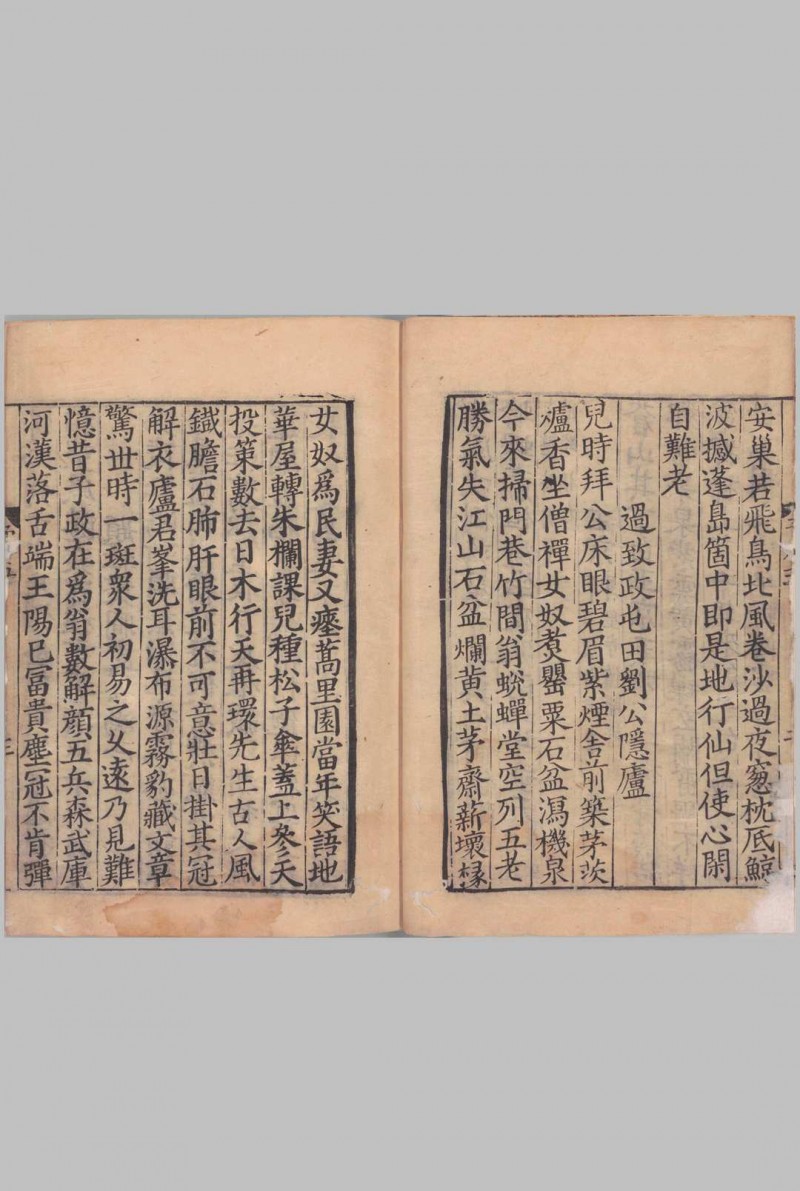 安巢若飛鳥北風卷沙過夜窓枕底鯨
波撼蓬島箇中即是地行仙但使心閑
自難老
過致政屯田劉公隱廬
兒時拜公床眼碧眉紫煙舍前築茅茨
爐香坐僧禪女奴煑罌粟石盆瀉機泉
今來掃門巷竹間翁蛻蟬堂空列五老
勝氣失江山石盆爛黄土茅齋薪壞椽
女奴爲民妻又瘞蒿里園當年笑語地
華屋轉朱欄課兒種松子傘蓋上參天
投筞數去日木行天再環先生古人風
鐡膽石肺肝眼前不可意壯日掛其冠
解衣廬君峯洗耳瀑布源霧豹藏文章
驚世時一斑衆人初易之久遠乃見難
憶昔子政在爲翁數解顔五兵森武庫
河漢落舌端王陽已冨貴塵冠不肯彈